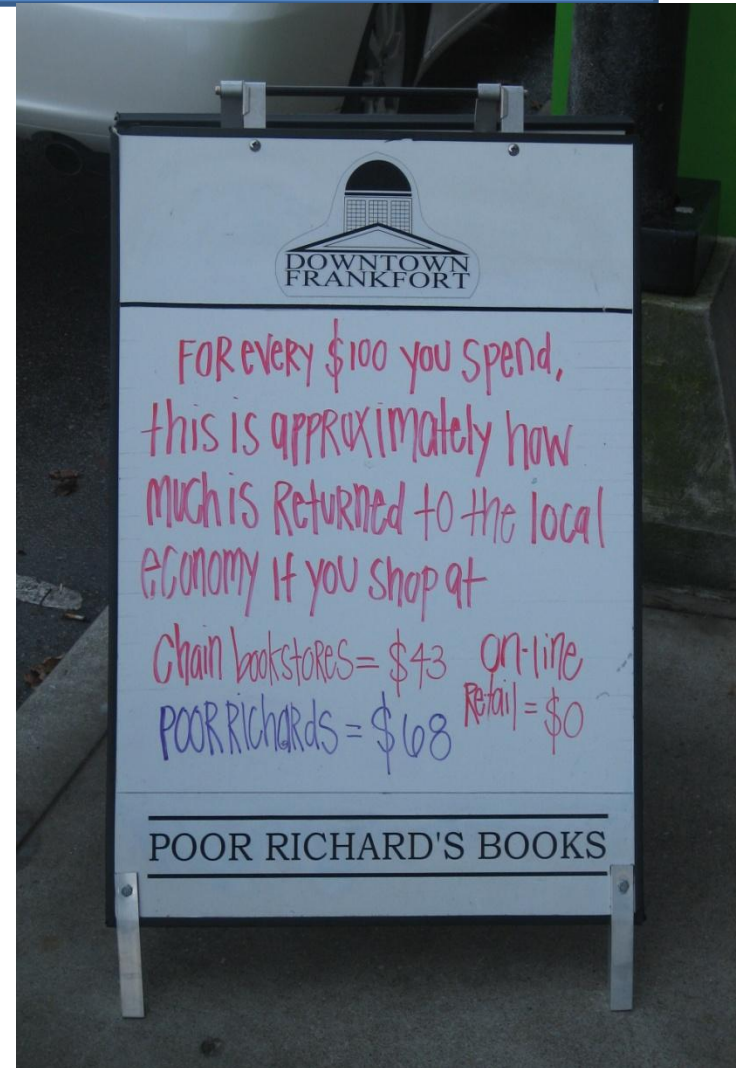 DOWNTOWN
FRANKFORT
FOR every $100 you spend,
this is appROximately how
much is Returned to the local
economy if you shop at
chain bookstoRes = $43
PooR Richards = $68
on-line
Retail = $0
POOR RICHARD'S BOOKS